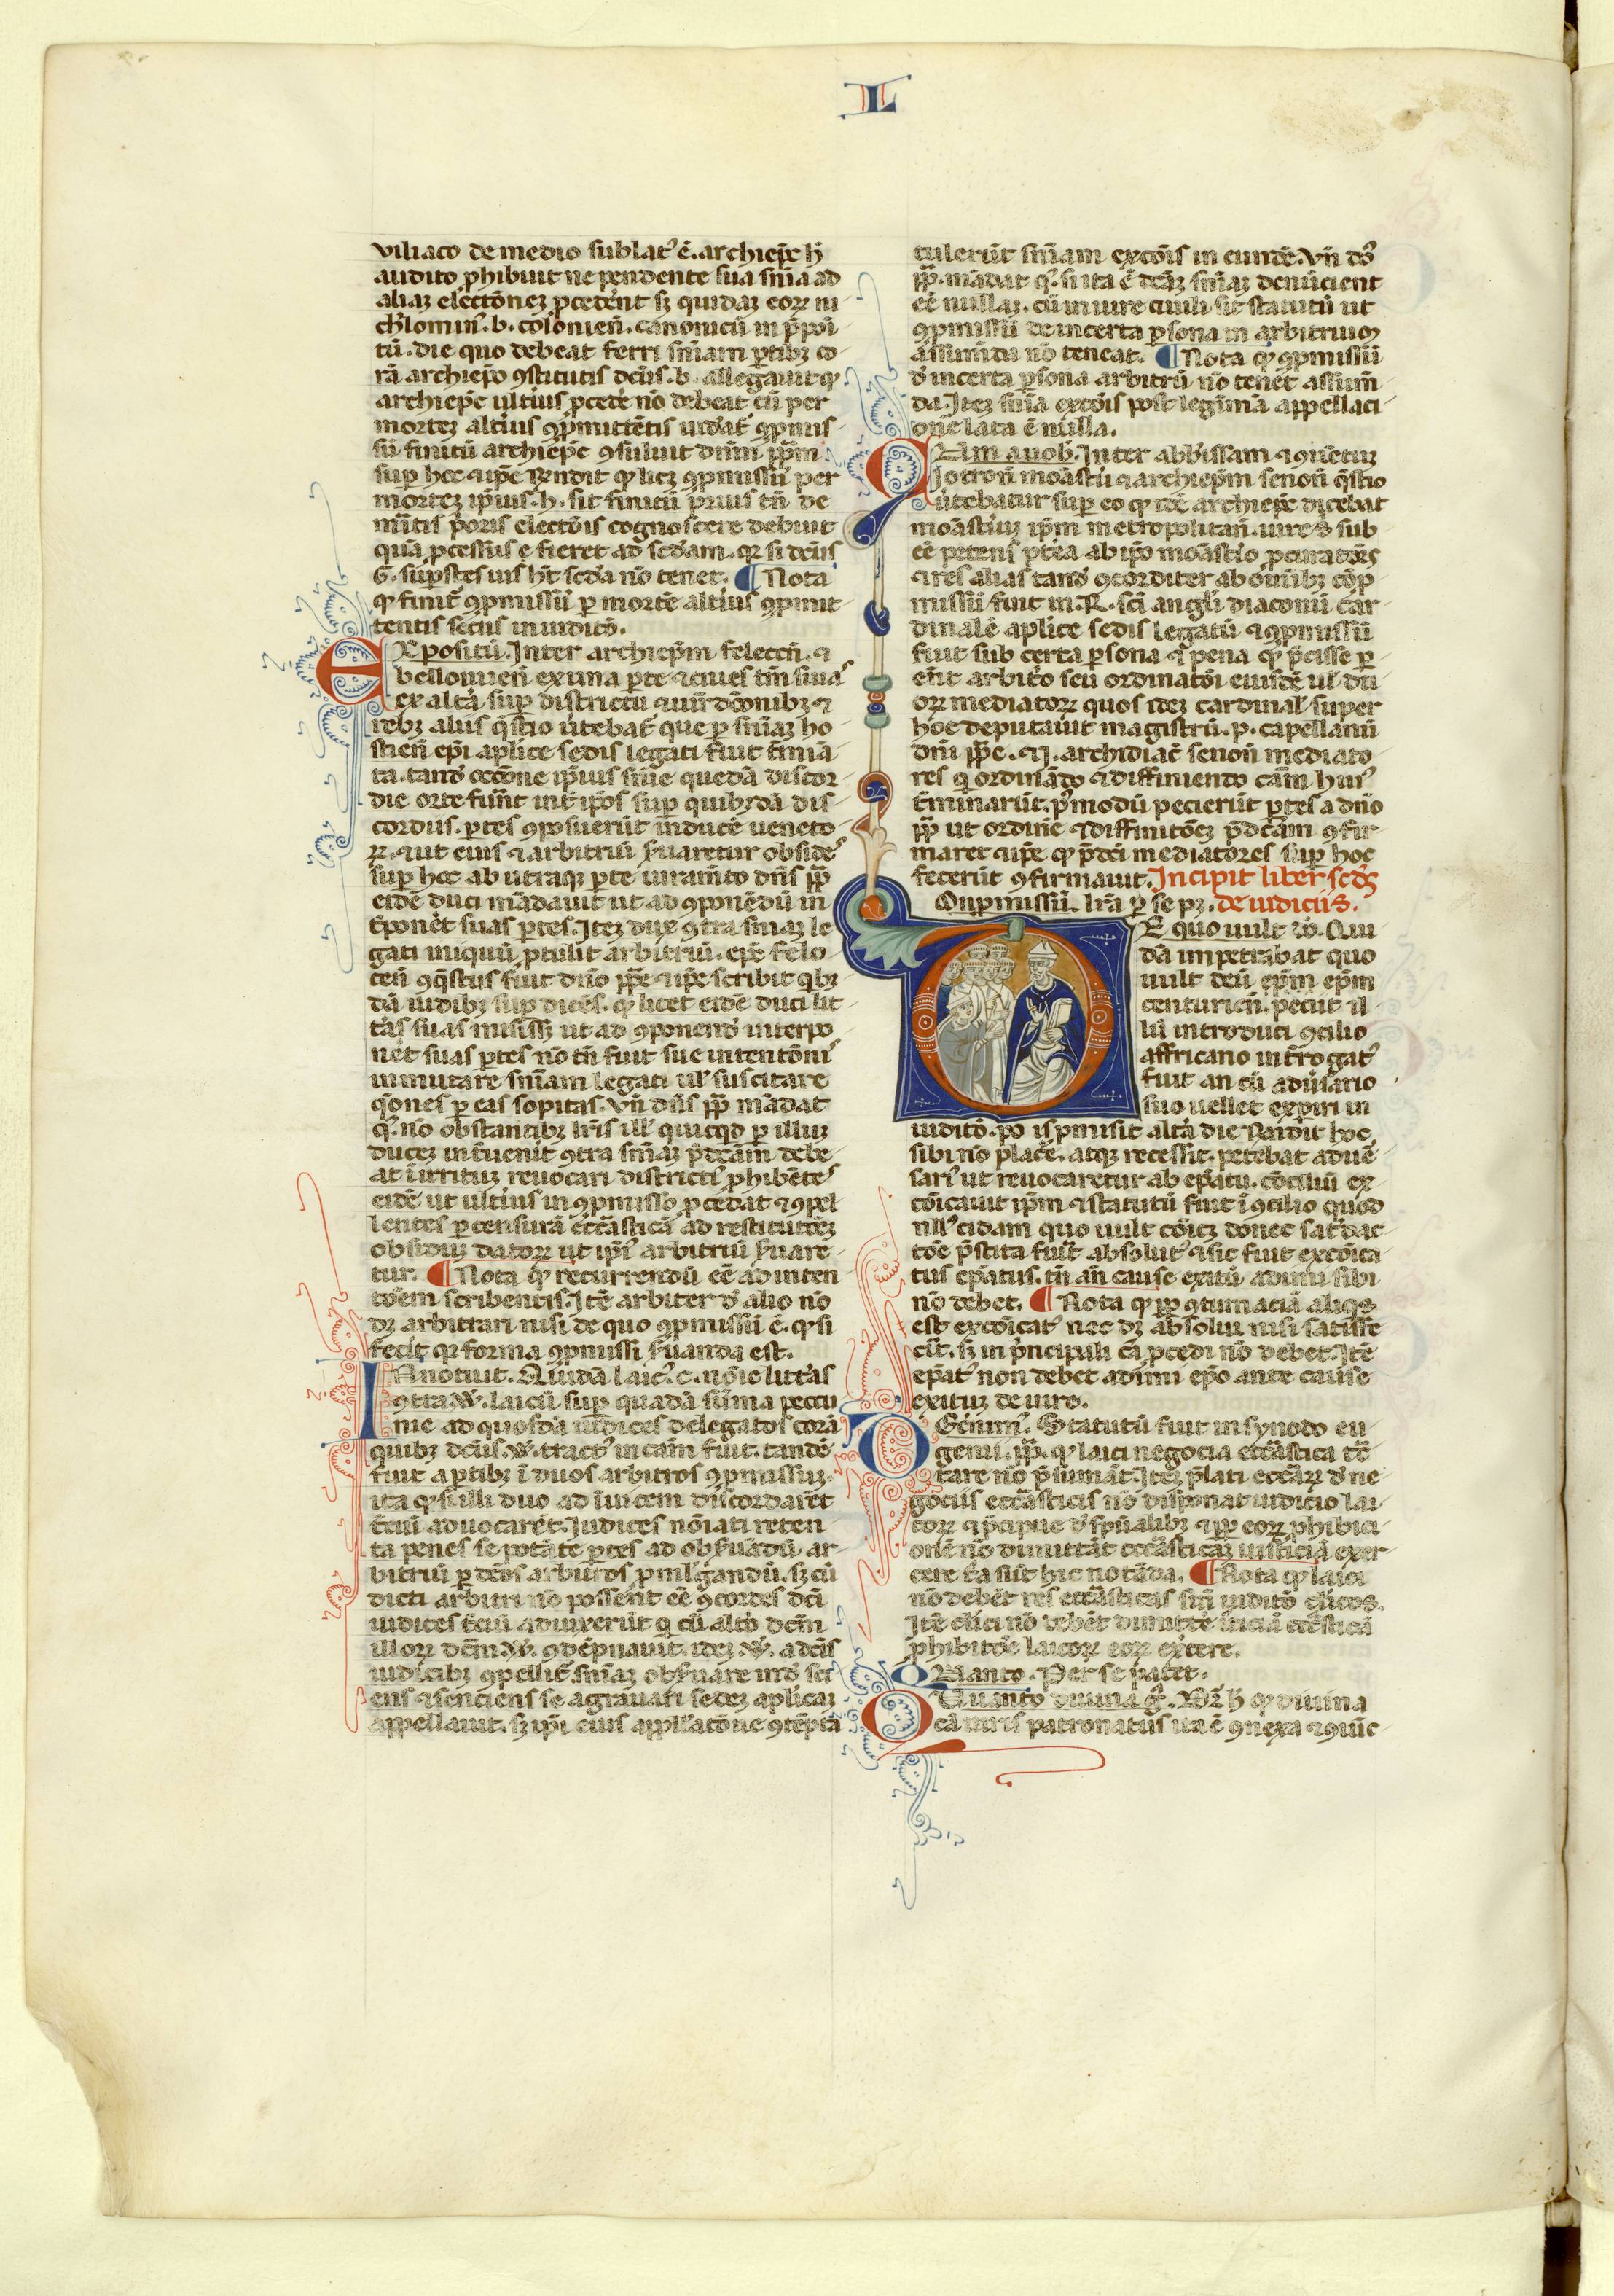 L
viliaco de medio sublat᾽ ē. archiep̄c h̄
audito ꝓhibuit ne pendente sua sn̄ia ad
aliaꝫ elect̄oneꝫ ꝓcedēnt sꝫ quidaꝫ eoꝝ ni
colonien̄. canonicū in p̄poi
tū. die quo debeat ferri sn̄iam ꝑtibꝫ co
rā archiep̄o ꝯstitutis dc̄us. b. allegauit ꝙ
archiep̄c ultius ꝓcedē nō debeat cū per
morteꝫ altius ꝯpmittētis uideat᾽ ꝯpmis
sū finitū archiep̄c ꝯsuluit dn̄m p̄p̄m
suꝑ hoc ⁊ ip̄e rn̄dit ꝙ licꝫ ꝯpmissū per
morteꝫ ip̄ius. h. sit finitū prius tn̄ de
m̄itis p̄oris elect̄ois cognoscere debuit
quā ꝓcessus fieret ad scd̄am. qꝛ si dc̄us
G. suꝑstes ius h̄t scd̄a nō tenet. ¶ Nota
ꝙ finit᾽ ꝯpmissū ꝑ mortē altius ꝯpmit
tentis secus in iudic̄o.
EXpositū. Inter archiep̄m felect̄n. ⁊
bellonien̄ ex una ꝑte ⁊ ciues t̄uisinū
ex alt̄a suꝑ districtu ⁊
rebꝫ aliis q̄stio ūtebat᾽ que ꝑ sn̄iaꝫ ho
stien̄ ep̄i ap̄lice sedis legati fuit t̄minā
ta. tand᾽ occ̄one ip̄ius sn̄ie quedā discor
die orte fuer̄nt int᾽ ip̄os suꝑ quibꝫdā dis
cordiis. ꝑtes ꝯposuerūt in ducē ueneto
ꝝ. ⁊ ut eius ⁊ arbitriū ẜuaretur obside᾽
suꝑ hoc ab utraqꝫ ꝑte iuram̄to dn̄s p̄p̄
eidē duci mādauit ut ad ꝯponēdū in
t̄ponēt suas ꝑtes. Iteꝫ dux ꝯtra sn̄iaꝫ le
gati iniquū ꝓtulit arbitriū. ep̄c felo
cen̄ ꝯq̄stus fuit dn̄o p̄p̄e ⁊ ip̄e scribit qbꝫ
dā iudibꝫ suꝑ dicēs. ꝙ licet eidē duci lit
t̄as suas misissꝫ ut ad ꝯponend᾽ interpo
nēt suas ꝑtes nō tn̄ fuit sue intent̄oni᾽
inmutare sn̄iam legati ul᾽ suscitare
q̄ones ꝑ eas sopitas. Vn̄ dn̄s p̄p̄ mādat
q᾽. nō obstantibꝫ lr̄is ill᾽ quicqd ꝑ illuꝫ
duceꝫ inuenit᾽ ꝯtra sn̄iaꝫ p̄dcām debe
at ī irrituꝫ reuocari districti᾽ ꝓhibēte᾽
eidē ut ultius in ꝯpmisso ꝓcedat ⁊ ꝯpel
lentes ꝑ censurā ecc̄asticā ad restitut̄oꝫ
obsiduꝫ datoꝝ ut ip̄i᾽ arbitriū ẜuare
tur. ¶ Nota ꝙ recurrendū eē ad inten
t̄oem scribentis. Itē arbiter d᾽ alio nō
dꝫ arbitrari nisi de quo ꝯpmissū ē. ꝙ si
fecit qꝛ forma ꝯpmissi ẜuanda est.
INnotuit. Quidā laic᾽. c. nōie litt̄as
ꝯtra. W. laicū suꝑ quadā sūma peccu
nie ad quosdā iudices delegatos corā
quibꝫ dc̄us. W. tract᾽ in cam fuit. tand᾽
fuit a ꝑtibꝫ ī duos arbitros ꝯpmissuꝫ.
ita ꝙ si illi duo ad īuicem discordarēt
t̄ciū aduocarēt. Iudices nōiati reten
ta penes se potate ꝑtes ad obẜuādū ar
bitriū ꝑ dc̄os arbitros ꝓmlgandū. sꝫ cū
dicti arbitri nō possent eē ꝯcordes dc̄i
iudices t̄ciū aduixerūt q cū alt̄o dc̄m
illoꝝ dc̄m. W. ꝯdēpnauit. ideꝫ. W. a dc̄is
iudicibꝫ ꝯpellit᾽ sn̄iaꝫ obẜuare
ens ⁊ senciens se agrauari sedeꝫ ap̄licaꝫ
appellauit. sꝫ ip̄i eius appllat̄one ꝯtēpta
tulerūt sn̄iam excōis in eundē. Vn̄ do᾽
p̄p̄. mādat q᾽. si ita ē dcāꝫ sn̄iaꝫ denūcient
eē nullaꝫ. cū in iure ciuili sit statutū ut
ꝯpmissū de incerta ꝑsona in arbitruꝫ
assumēda nō teneat. ¶ Nota ꝙ ꝯpmissū
d᾽ incerta ꝑsona arbitrū nō tenet assum̄
da. Iteꝫ sn̄ia excōis post legīmā appellaci
onē lata ē nulla.
CUm a uob᾽. Inter abbissam ⁊ ꝯuētuꝫ
Iotron̄ moāstii ⁊ archiep̄m senon̄ q̄stio
ūtebatur suꝑ eo ꝙ idē archiep̄c dicebat
moāstiuꝫ ip̄m metropolitan̄. iure s᾽ sub
eē petens ptea ab ipo moāstio ꝓcuratōes
⁊ res alias tand᾽ ꝯcorditer ab oībꝫ cōp
missū fuit in. R. sc̄i angli diaconū car
dinalē ap̄lice sedis legatū ⁊ ꝯpmissū
fuit sub certa ꝑsona ⁊ pena ꝙ p̄cisse ꝑ
ēnt arbit̄o seu ordinat̄oi eiusdē ul᾽ du
oꝝ mediatoꝝ quos ideꝫ cardinal᾽ super
hoc deputauit magistrū. p. capellanū
dn̄i p̄p̄e. ⁊ J. archidiac̄ senon̄ mediato
res q ordināto ⁊ diffiniendo cām hui᾽
t̄minarūt. p᾽modū pecierūt ꝑtes a dn̄o
p̄p̄ ut ordinē ⁊ diffinit̄oeꝫ p̄dcām ꝯfir
maret ⁊ ip̄e ꝙ p̄dci mediatores suꝑ hoc
fecerūt ꝯfirmauit. Incipit liber scd᾽s
Onpmissū. lr̄a ꝑ se pꝫ. de iudiciis.
DE quo uult d᾽. Qui
dā impetrabat quo
uult deū ep̄m ep̄m
centuricn̄. pecut il
lū introduci ꝯcilio
affricano int̄rogat᾽
fuit an cū adūsario
suo uellet expiri in
iudic̄o. po᾽ is ꝓmisit alt̄a die rn̄dit hoc
sibi nō placē. atqꝫ recessit. petebat aduē
sari᾽ ut reuocaretur ab ep̄atu. cōciliū ex
cōicauit ip̄m ⁊ statutū fuit ī ꝯcilio quod
null᾽ eidam quo uult cōicꝫ donec sat᾽dac
t̄oē p̄stita fuīt absolut᾽ ⁊ sic fuit excōica
tus ep̄atus. tn̄ an̄ cause exitū adimi sibi
nō debet. ¶ Nota ꝙ ꝓp ꝯtumaciā aliqs
est excōicat᾽ nec dꝫ absolui nisi satisfe
cit. sꝫ in p̄ncipali cā ꝓcedi nō debet. Itē
ep̄at᾽ non debet adimi ep̄o ante cause
exituꝫ de iure.
DEcernim᾽. Statutū fuit in synodo eu
genii. p̄p̄. ꝙ laici negocia ecc̄astica t̄c
tare nō p̄sumāt. Iteꝫ p̄lati ecc̄aꝝ d᾽ ne
gociis ecc̄asticis nō disponāt iudicio lai
coꝝ ⁊ p̄cipue d᾽ sp̄ualibꝫ ⁊ ꝓp eoꝝ ꝓhibici
onē nō dimittāt ecc̄asticaꝫ iusticiā exer
cere hic notāda. ¶ Nota ꝙ laici
nō debēt res ecc̄asticas suī iudic̄o clicos.
Itē clici nō debēt dimittē iticiā ecc̄asticā
ꝓhibit̄oe laicoꝝ eoꝝ exc̄ere.
QUanto. Per se patet.
QUanto diuina g᾽. h ꝙ diuina
cā iuris patronatus ita ē ꝯnexa ⁊ ꝯiūc